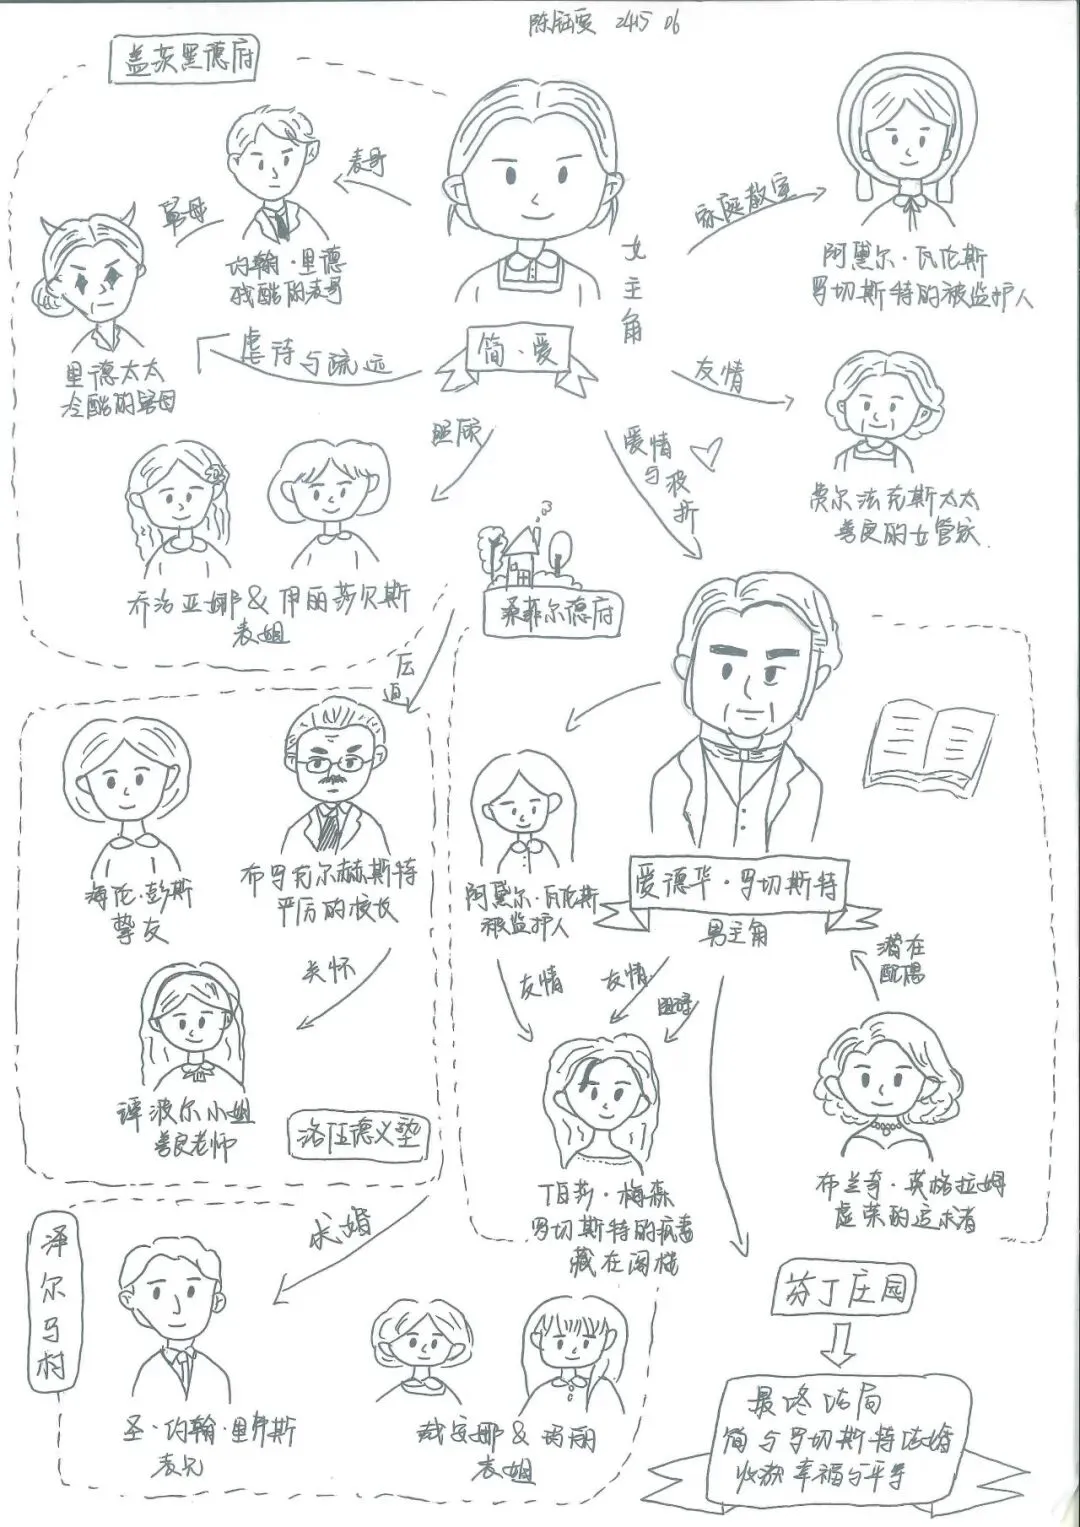 陈钰雯 2415 06
盖茨黑德府
表哥
舅母
约翰·里德
残酷的表哥
里德太太
冷酷的舅母
虐待与疏远
简·爱
女主角
家庭教室
阿黛尔·瓦伦斯
罗切斯特的被监护人
友情
费尔法克斯太太
善良的女管家
照顾
爱情
与波折
乔治亚娜&伊丽莎贝斯
表姐
桑菲尔德府
压迫
海伦·彭斯
挚友
布罗克尔赫斯特
严厉的校长
关怀
谭波尔小姐
善良老师
洛伍德义塾
阿黛尔·瓦伦斯
被监护人
爱德华·罗切斯特
男主角
友情
友情
阻碍
潜在
配偶
伯莎·梅森
罗切斯特的疯妻
藏在阁楼
布兰奇·英格拉姆
虚荣的追求者
泽尔马村
求婚
圣·约翰·里弗斯
表兄
戴安娜&玛丽
表姐
芬丁庄园
最终结局
简与罗切斯特结婚
收获幸福与平等